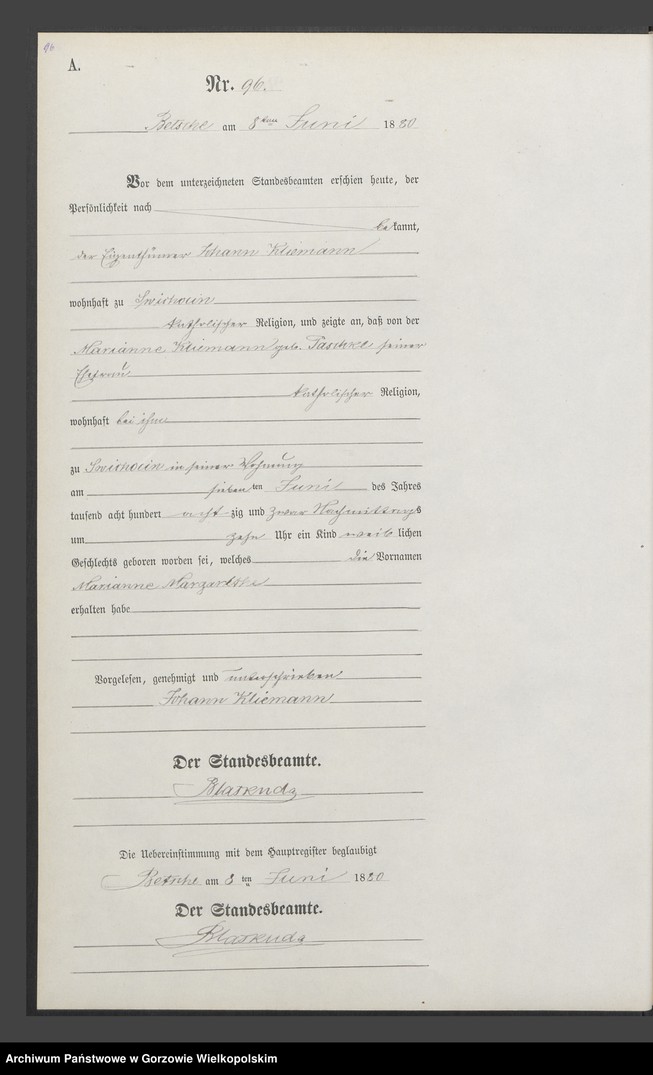 96
A.
Nr. 96.
Betsche am 8ten Juni 1880
Vor dem unterzeichneten Standesbeamten erschien heute, der
Persönlichkeit nach
bekannt,
der Eigenthümer Johann Kliemann
wohnhaft zu
katholischer Religion, und zeigte an, daß von der
Marianne Kliemann geb. Paschke seiner
Ehefrau
katholischer Religion,
wohnhaft bei ihm
zu in seiner Wohnung
am sieben ten Juni des Jahres
tausend acht hundert acht-zig und zwar Nachmittags
um zehn Uhr ein Kind weib lichen
Geschlechts geboren worden sei, welches die Vornamen
Marianne
erhalten habe
Vorgelesen, genehmigt und unterschrieben
Johann Kliemann
Der Standesbeamte.
Die Uebereinstimmung mit dem Hauptregister beglaubigt
Betsche am 8 ten Juni 1880
Der Standesbeamte.
Archiwum Państwowe w Gorzowie Wielkopolskim